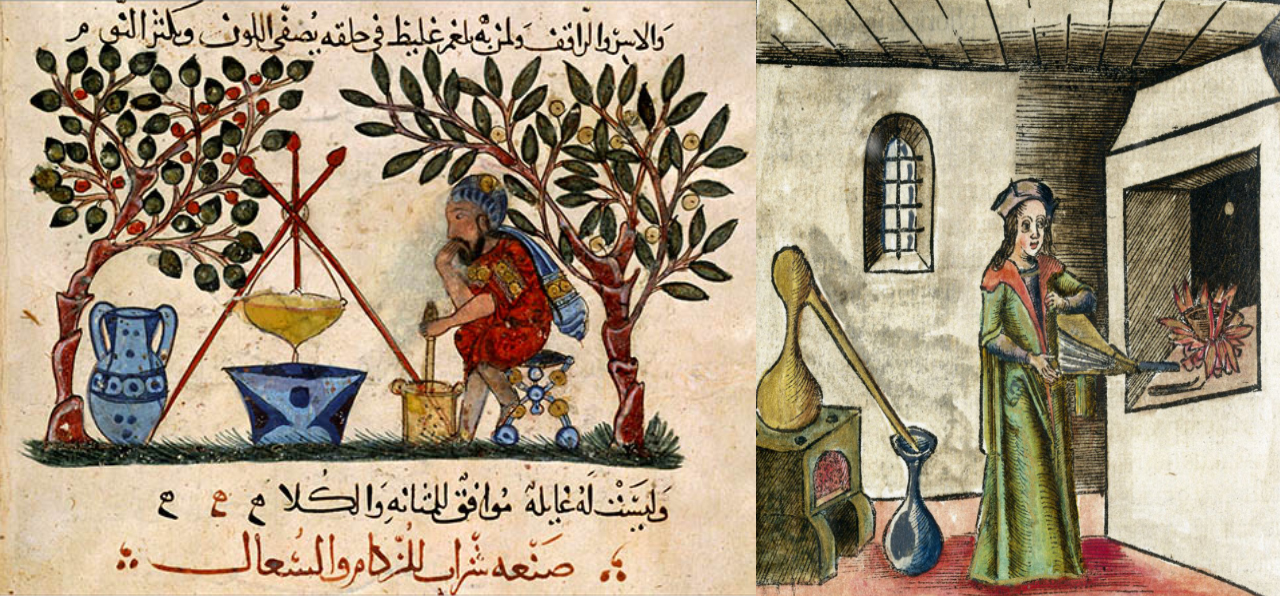 ولمن به بلغم غليظ فى حلقه يُصفّى اللون ويكثر النّوم
وَليسَتْ لَهُ غايلة مُوافقٌ للمثانه وَالكُلا ح ح ح
صَنْعه شَراب للزُكام والسُعال